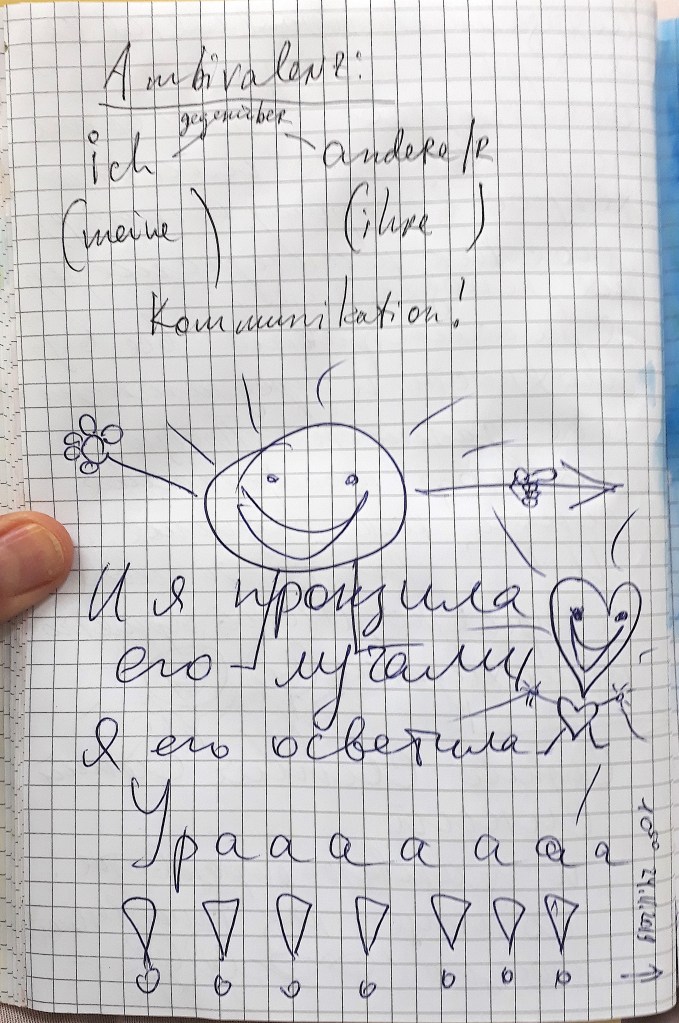 Ambivalenz:
gegenüber
ich andere/r
(meine ) (ihre )
Kommunikation!
И я пронзила
его лучами,
Я его осветила
Ураааааааа
!!!!!!!